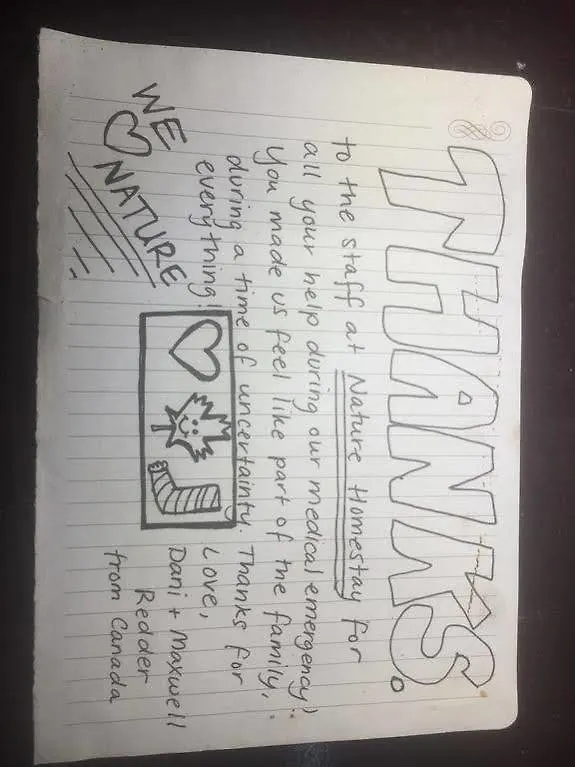 THANKS.
to the staff at Nature Homestay for
all your help during our medical emergency!
You made us feel like part of the family,
during a time of uncertainty. Thanks for
everything!
Love,
Dani + Maxwell
Redder
from Canada
WE
♡ NATURE